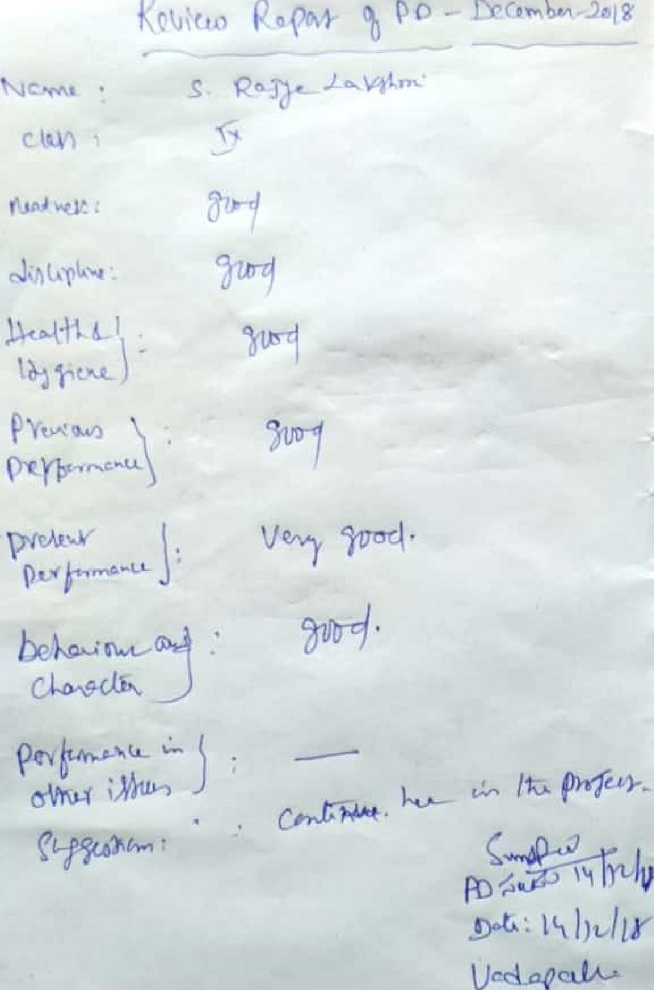 Review Report of PD - December-2018
Name : S. Rajye Lakshmi
Class : IX
Neadness: good
discipline: good
Health &
Hygiene : good
Previous
Prefformance : good
Present
Performance : Very good.
behaviour and
Character : good.
Perfomance in
other issues : —
Suggestion: : Continue her in the project.
PD 14/12/18
Date: 14/12/18
Vadapalli